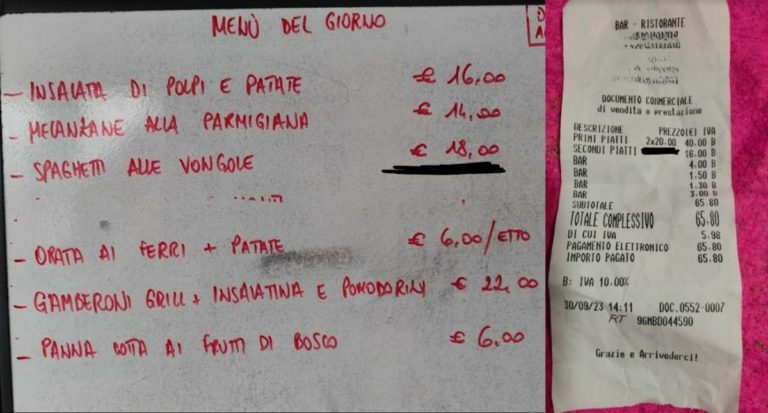 MENÙ DEL GIORNO
- INSALATA DI POLPI E PATATE € 16,00
- MELANZANE ALLA PARMIGIANA € 14,00
- SPAGHETTI ALLE VONGOLE € 18,00
- ORATA AI FERRI + PATATE € 6,00/ETTO
- GAMBERONI GRILL + INSALATINA E POMODORINI € 22,00
- PANNA COTTA AI FRUTTI DI BOSCO € 6,00
BAR - RISTORANTE
DOCUMENTO COMMERCIALE
di vendita o prestazione
DESCRIZIONE PREZZO(€) IVA
PRIMI PIATTI 2x20.00 40.00 B
SECONDI PIATTI 16.00 B
BAR 4.00 B
BAR 1.50 B
BAR 1.30 B
BAR 3.00 B
SUBTOTALE 65.80
TOTALE COMPLESSIVO 65.80
DI CUI IVA 5.98
PAGAMENTO ELETTRONICO 65.80
IMPORTO PAGATO 65.80
B: IVA 10.00%
30/09/23 14:11 DOC.0552-0007
RT 96MBD044590
Grazie e Arrivederci!